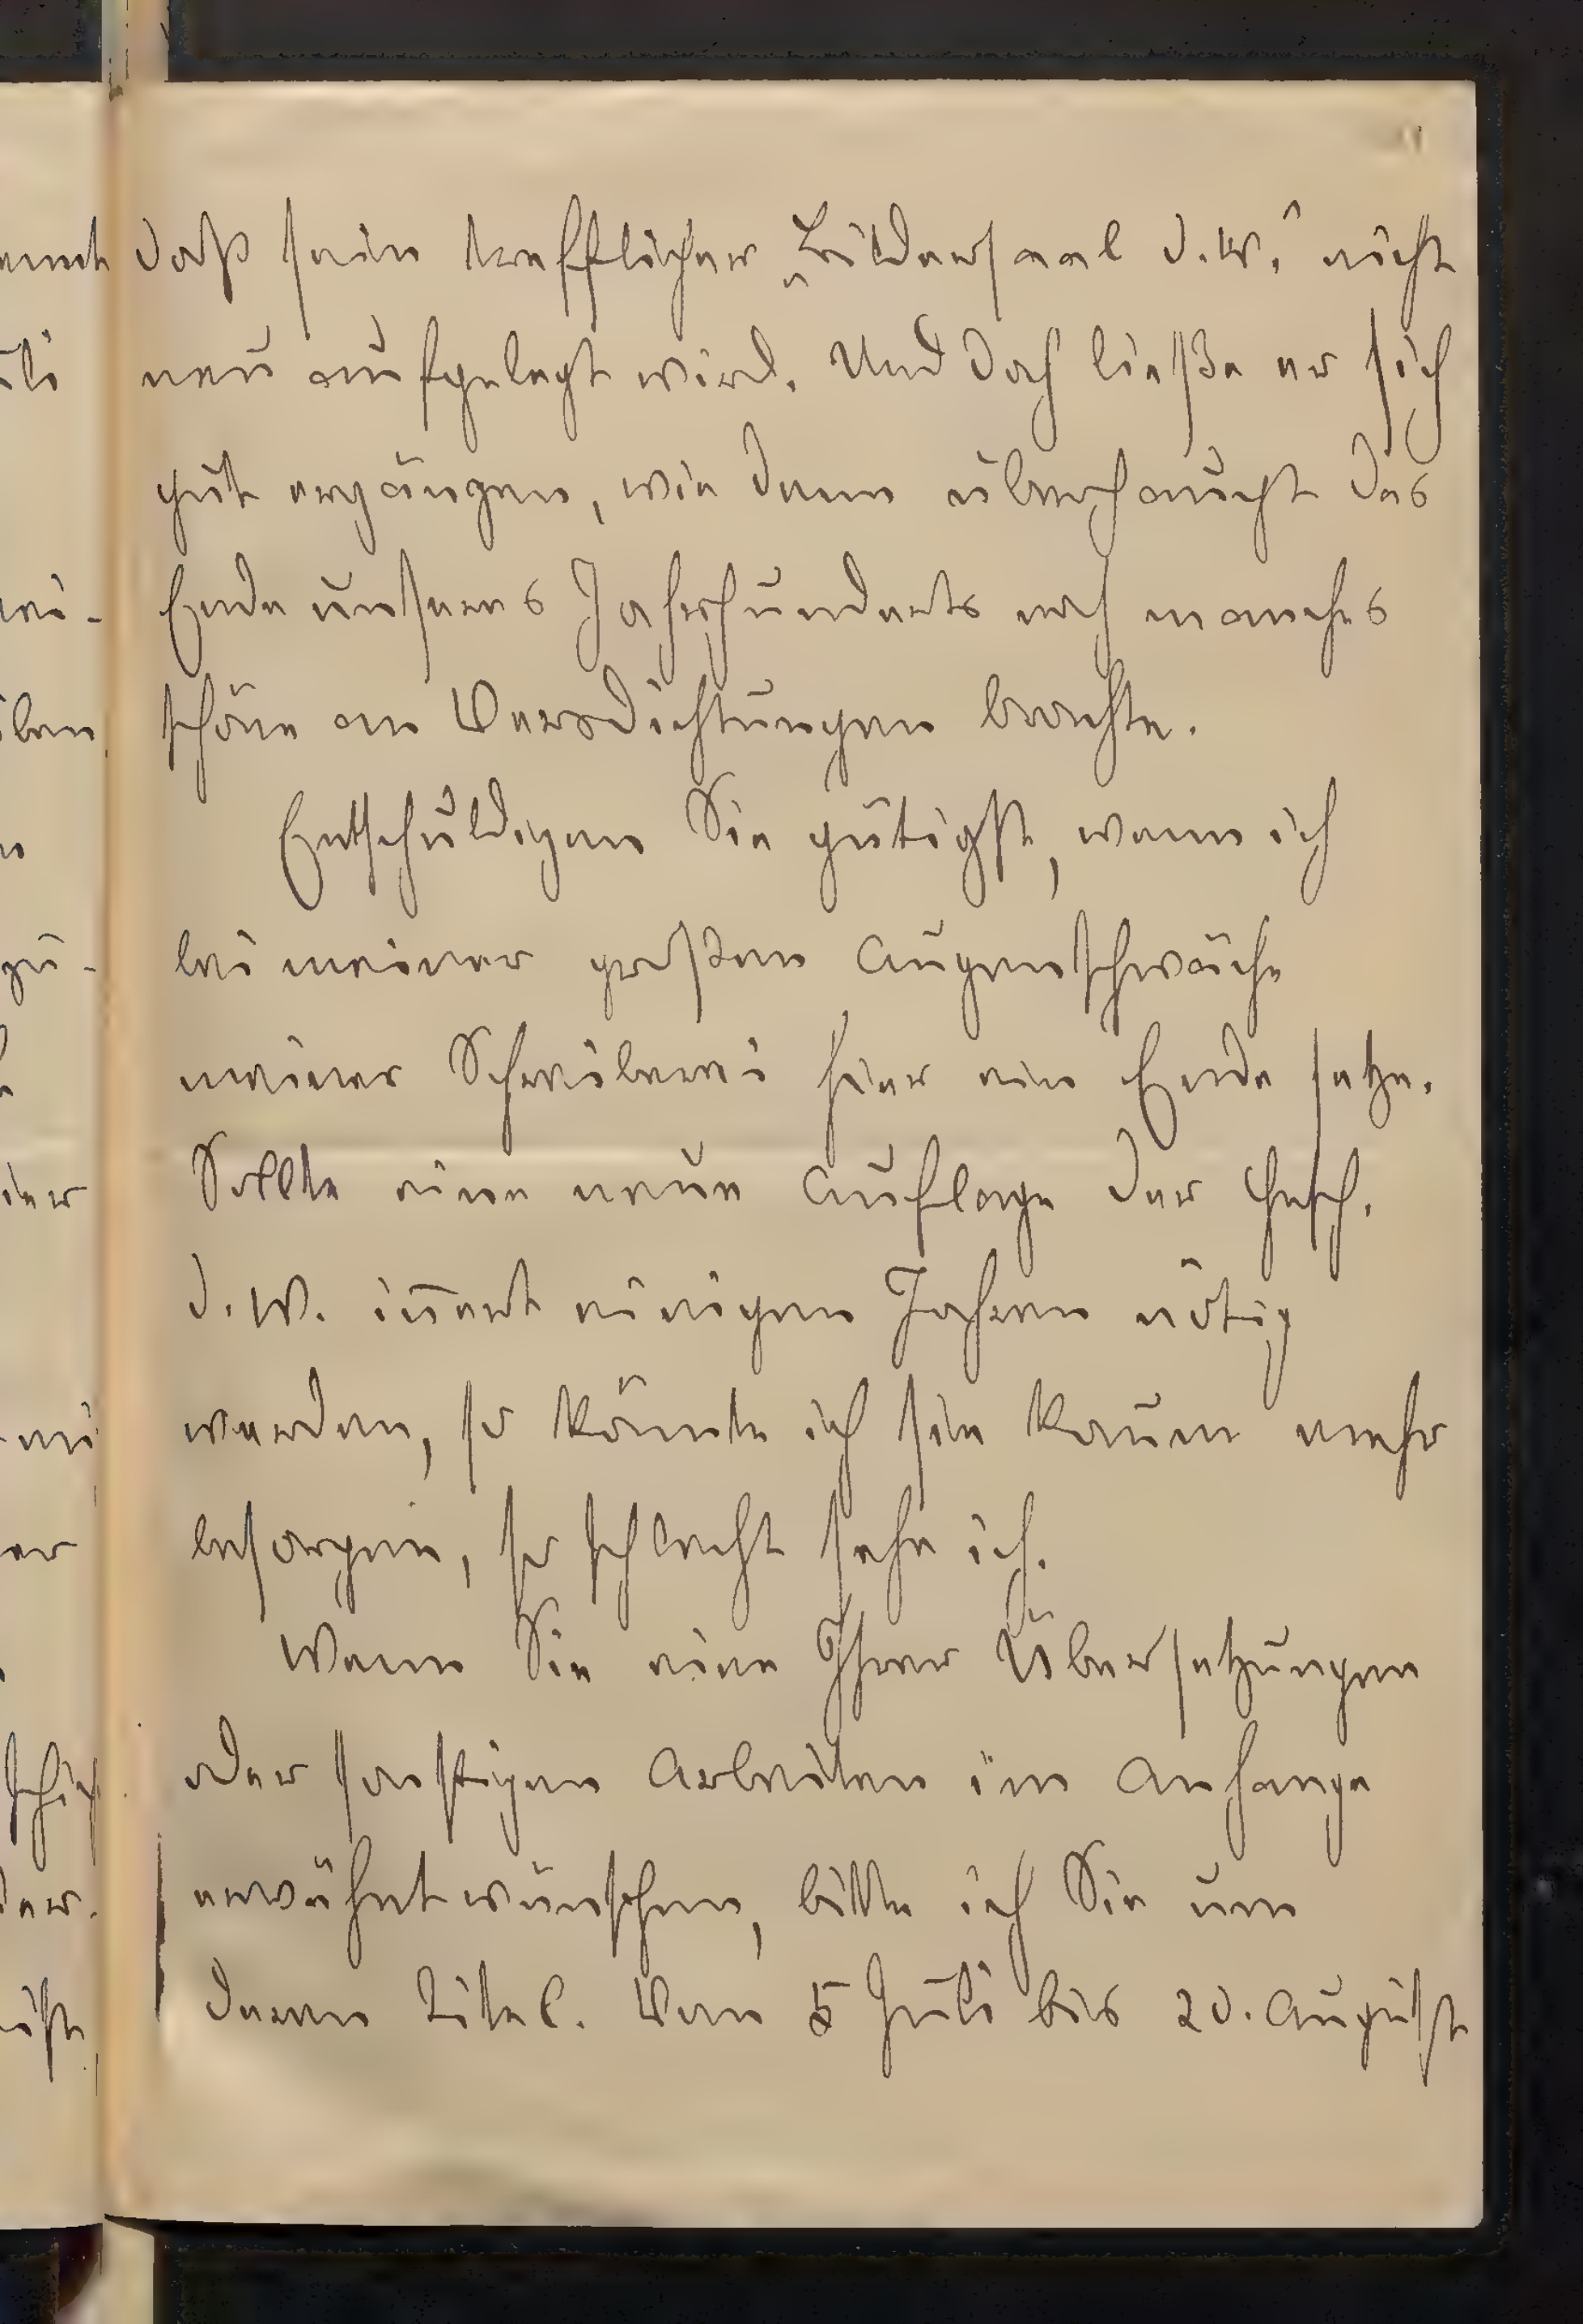 daß sein trefflicher „Bildersaal d. W.“ nicht
neu aufgelegt wird. Und doch ließe er sich
gut ergänzen, wie denn überhaupt das
Ende unseres Jahrhunderts noch manches
schöne an Versdichtungen brachte.
Entschuldigen Sie gütigst, wenn ich
bei meiner großen Augenschwäche
meiner Schreiberei hier ein Ende setze.
Sollte eine neue Auflage der Gesch.
d. W. innert einigen Jahren nötig
werden, so könnte ich sie kaum mehr
besorgen, so schlecht sehe ich.
Wenn Sie eine Ihrer Übersetzungen
oder sonstigen Arbeiten im Anhange
erwähnt wünschen, bitte ich Sie um
deren Titel. Von 5 Juli bis 20. August